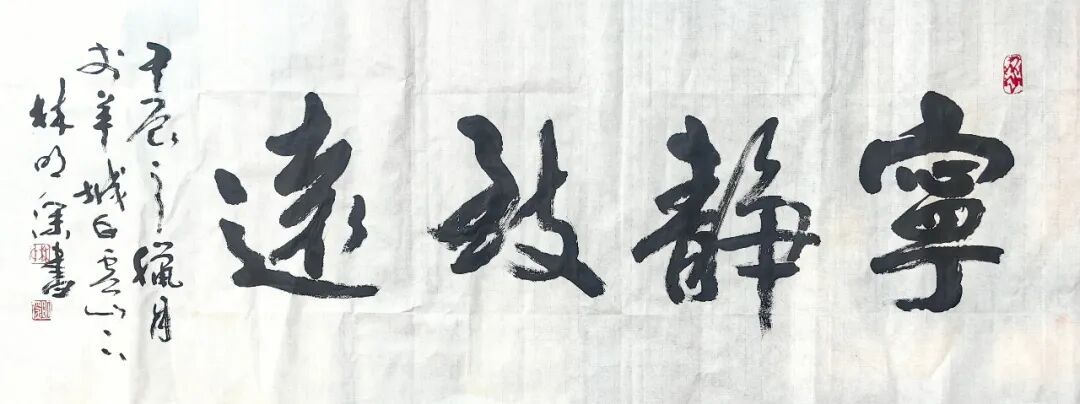 寧靜致遠
壬辰之臘月
於羊城白雲山下
林明深書